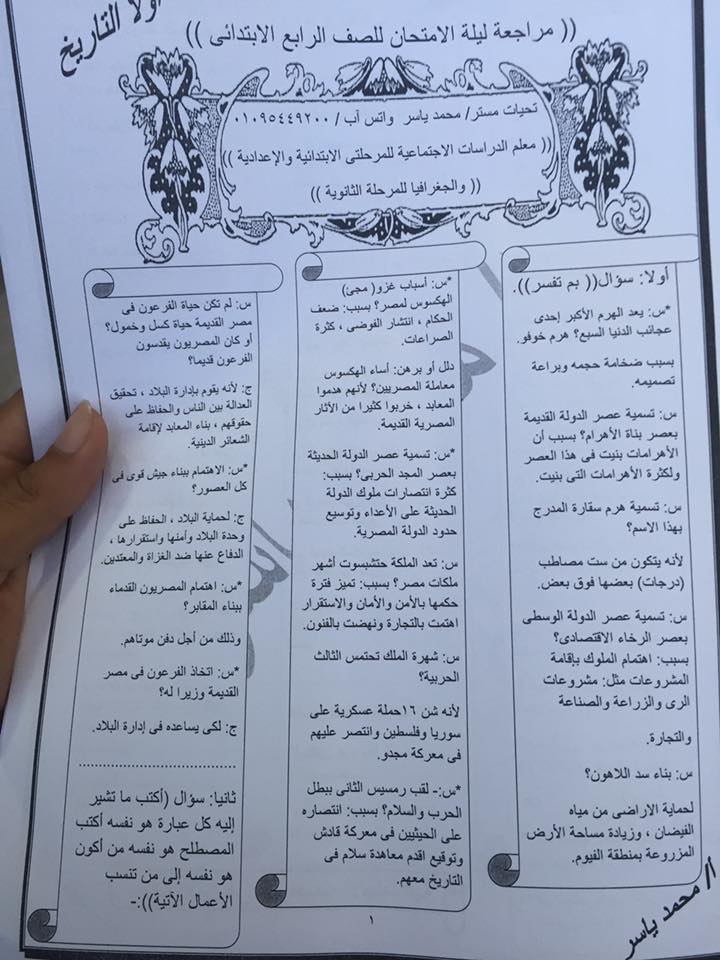 أولا التاريخ
(( مراجعة ليلة الامتحان للصف الرابع الابتدائى ))
تحيات مستر/ محمد ياسر واتس آب / ٠١٠٩٥٤٤٩٢٠٠
(( معلم الدراسات الاجتماعية للمرحلتى الابتدائية والإعدادية ))
(( والجغرافيا للمرحلة الثانوية ))
أولا: سؤال(( بم تفسر)).
*س: يعد الهرم الأكبر إحدى
عجائب الدنيا السبع؟ هرم خوفو.
بسبب ضخامة حجمه وبراعة
تصميمه.
س: تسمية عصر الدولة القديمة
بعصر بناة الأهرام؟ بسبب أن
الأهرامات بنيت فى هذا العصر
ولكثرة الأهرامات التى بنيت.
س: تسمية هرم سقارة المدرج
بهذا الاسم؟
لأنه يتكون من ست مصاطب
(درجات) بعضها فوق بعض.
س: تسمية عصر الدولة الوسطى
بعصر الرخاء الاقتصادى؟
بسبب: اهتمام الملوك بإقامة
المشروعات مثل: مشروعات
الرى والزراعة والصناعة
والتجارة.
س: بناء سد اللاهون؟
لحماية الاراضى من مياه
الفيضان ، وزيادة مساحة الأرض
المزروعة بمنطقة الفيوم.
*س: أسباب غزو( مجئ)
الهكسوس لمصر؟ بسبب: ضعف
الحكام ، انتشار الفوضى ، كثرة
الصراعات.
دلل أو برهن: أساء الهكسوس
معاملة المصريين؟ لأنهم هدموا
المعابد ، خربوا كثيرا من الآثار
المصرية القديمة.
*س: تسمية عصر الدولة الحديثة
بعصر المجد الحربى؟ بسبب:
كثرة انتصارات ملوك الدولة
الحديثة على الأعداء وتوسيع
حدود الدولة المصرية.
س: تعد الملكة حتشبسوت أشهر
ملكات مصر؟ بسبب: تميز فترة
حكمها بالأمن والأمان والاستقرار
اهتمت بالتجارة ونهضت بالفنون.
س: شهرة الملك تحتمس الثالث
الحربية؟
لأنه شن ١٦حملة عسكرية على
سوريا وفلسطين وانتصر عليهم
فى معركة مجدو.
*س:- لقب رمسيس الثانى ببطل
الحرب والسلام؟ بسبب: انتصاره
على الحيثيين فى معركة قادش
وتوقيع اقدم معاهدة سلام فى
التاريخ معهم.
س: لم تكن حياة الفرعون فى
مصر القديمة حياة كسل وخمول؟
أو كان المصريون يقدسون
الفرعون قديما؟
ج: لأنه يقوم بإدارة البلاد ، تحقيق
العدالة بين الناس والحفاظ على
حقوقهم ، بناء المعابد لإقامة
الشعائر الدينية.
*س: الاهتمام ببناء جيش قوى فى
كل العصور؟
ج: لحماية البلاد ، الحفاظ على
وحدة البلاد وأمنها واستقرارها ،
الدفاع عنها ضد الغزاة والمعتدين.
*س: اهتمام المصريون القدماء
ببناء المقابر؟
وذلك من أجل دفن موتاهم.
*س: اتخاذ الفرعون فى مصر
القديمة وزيرا له؟
ج: لكى يساعده فى إدارة البلاد.
......................................
ثانيا: سؤال (أكتب ما تشير
إليه كل عبارة هو نفسه أكتب
المصطلح هو نفسه من أكون
هو نفسه إلى من تنسب
الأعمال الآتية)):-
١
أ/ محمد ياسر